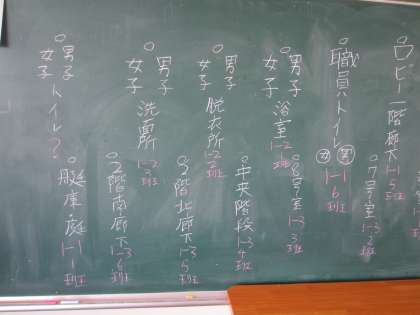 ロビー一階廊下
1-1
5班
職員トイレ
女 男
1-1
6班
7号室
1-3
2班
男子
女子
浴室
1-2
1班
8号室
1-3
3班
男子
女子
脱衣所
1-2
2班
中央階段
1-3
4班
男子
女子
洗面所
1-2
3班
3階北廊下
1-3
5班
2階南廊下
1-3
6班
男子
女子
トイレ?
艇庫・庭
1-1
1班